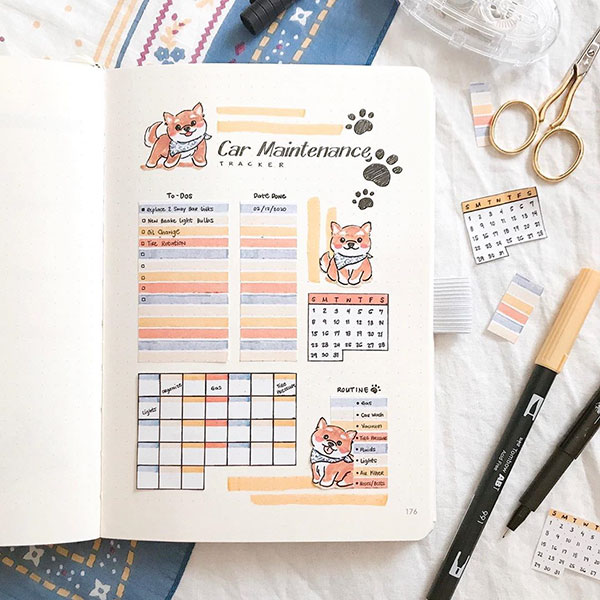 Car Maintenance
TRACKER
To-Dos
Replace 2 Sway Bar Links
New Brake Light Bulbs
Oil Change
Tire Rotation
Date Done
02/17/2020
S M T W T F S
1 2 3 4 5 6 7
8 9 10 11 12 13 14
15 16 17 18 19 20 21
22 23 24 25 26 27 28
29 30 31
organize
Gas
Tire Pressure
Lights
ROUTINE
Gas
Car Wash
Vacuum
Tire Pressure
Fluids
Lights
Air Filter
176
S M T W T F S
1 2 3 4 5 6 7
8 9 10 11 12 13 14
15 16 17 18 19 20 21
22 23 24 25 26 27 28
29 30 31
Tombow ABT
991